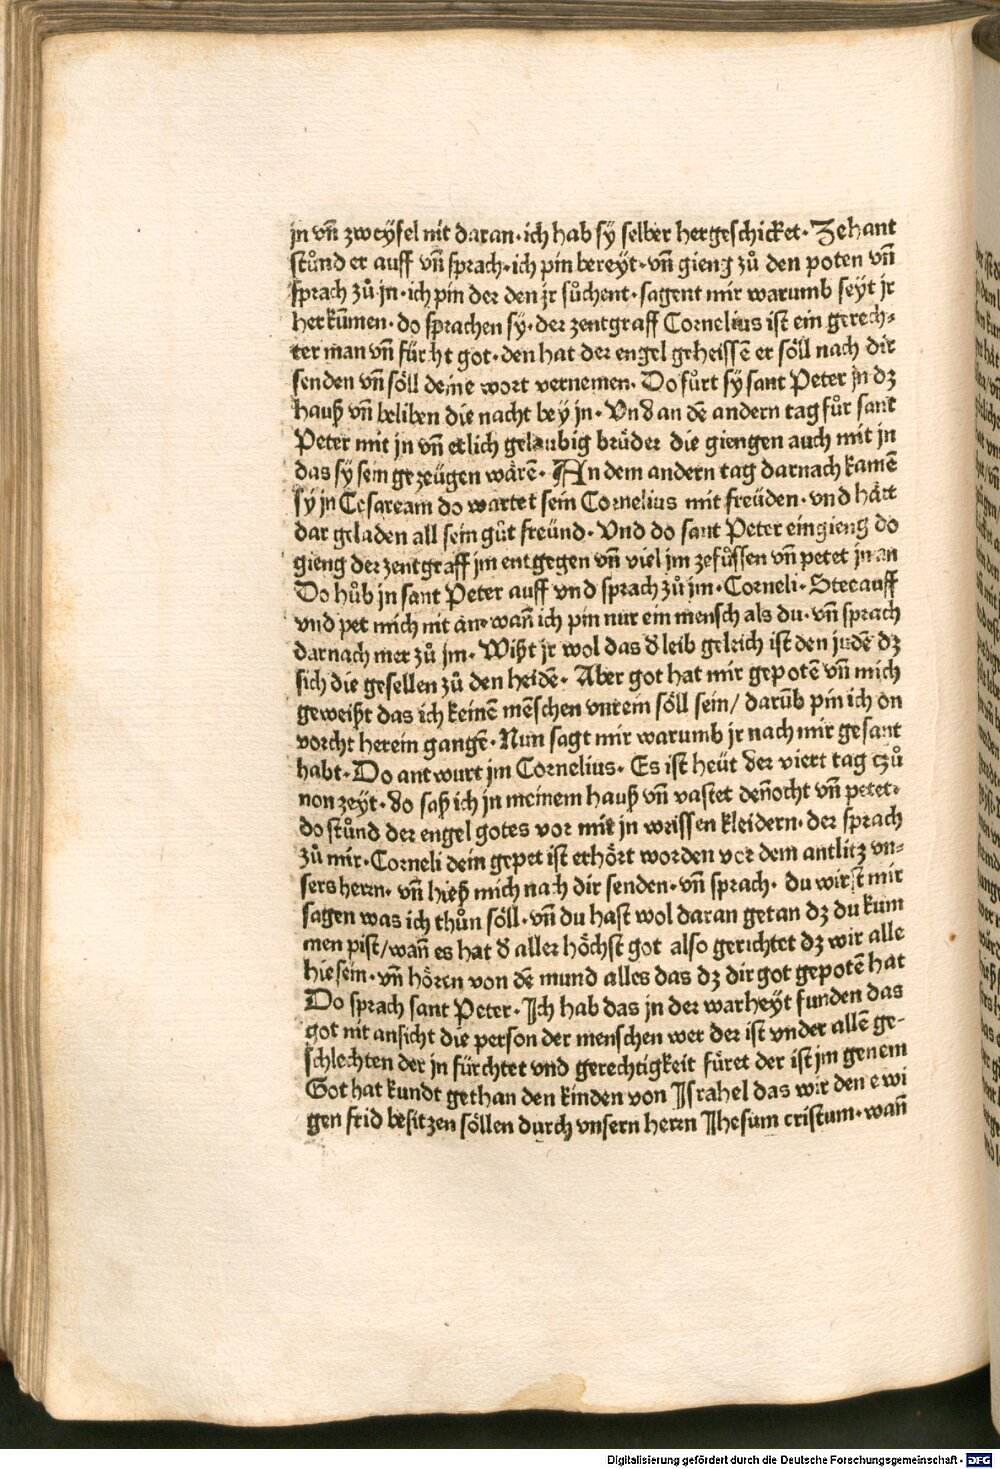 jn vñ zweẏfel nit daran· ich hab sẏ selber hergeschicket· Zehant
stůnd er auff vñ sprach· ich pin bereẏt· vñ gieng zů den poten vñ
sprach zů jn· ich pin der den jr sůchent· sagent mir warumb seẏt jr
herkũmen· do sprachen sẏ· der zentgraff Cornelius ist ein gerech⸗
ter man vñ fürcht got· den hat der engel geheissẽ er söll nach dir
senden vñ söll deine wort vernemen· Do fůrt sẏ sant Peter jn dz
hauß vñ beliben die nacht beẏ jn· Vnd an dẽ andern tag fůr sant
Peter mit jn vñ etlich gelaubig brüder die giengen auch mit jn
das sẏ sein gezeügen wärẽ· An dem andern tag darnach kamẽ
sẏ jn Cesaream do wartet sein Cornelius mit freüden· vnd hätt
dar geladen all sein gůt freünd· Vnd do sant Peter eingieng do
gieng der zentgraff jm entgegen vñ viel jm zefůssen vñ petet jn an
Do hůb jn sant Peter auff vnd sprach zů jm· Corneli· Stee auff
vnd pet mich nit an· wañ ich pin nur ein mensch als du· vñ sprach
darnach mer zů jm· Wißt jr wol das d leib geleich ist den judẽ dz
sich die gesellen zů den heidẽ· Aber got hat mir gepotẽ vñ mich
geweißt das ich keinẽ mẽschen vnrein söll sein/ darũb pin ich on
vorcht herein gangẽ· Nun sagt mir warumb jr nach mir gesant
habt· Do antwurt jm Cornelius· Es ist heüt der viert tag czů
non zeẏt· do saß ich jn meinem hauß vñ vastet deñocht vñ petet·
do stůnd der engel gotes vor mir jn weissen kleidern· der sprach
zů mir· Corneli dein gepet ist erhört worden vor dem antlitz vn⸗
sers herrn· vñ hieß mich nach dir senden· vñ sprach· du wirst mir
sagen was ich thůn söll· vñ du hast wol daran getan dz du kum
men pist/ wañ es hat d aller höchst got also gerichtet dz wir alle
hie sein· vñ hören von dẽ mund alles das dz dir got gepotẽ hat
Do sprach sant Peter· Ich hab das jn der warheẏt funden das
got nit ansicht die person der menschen wer der ist vnder allẽ ge⸗
schlechten der jn fürchtet vnd gerechtigkeit füret der ist jm genem
Got hat kundt gethan den kinden von Israhel das wir den ewi
gen frid besitzen söllen durch vnsern herrn Jhesum cristum· wañ
Digitalisierung gefördert durch die Deutsche Forschungsgemeinschaft · DFG